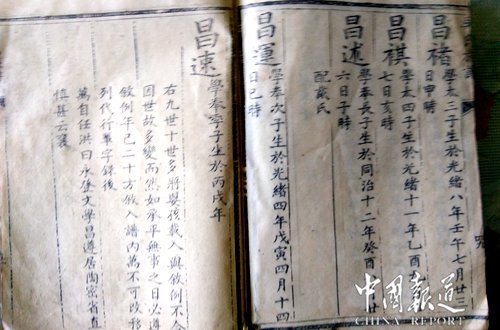 昌
學太三子生於光緒八年壬午七月廿三
日申時
昌祺
學太四子生於光緒十一年乙酉
七日亥時
昌述
學奉長子生於同治十二年癸酉
六日子時
配氏
昌運
學奉次子生於光緒四年戊寅四月十四
日巳時
昌速
學奉子生於丙戌年
右九世十世多將嬰孩載入與敘例不合
因世故多變而然如承平無事之日必遵
敘例年已二十方敘入譜內萬不可改移
列代行輩字錄後
萬自任洪曰永登文學昌遵居陶密省直
植甚云義
中國報道
CHINA REPORT